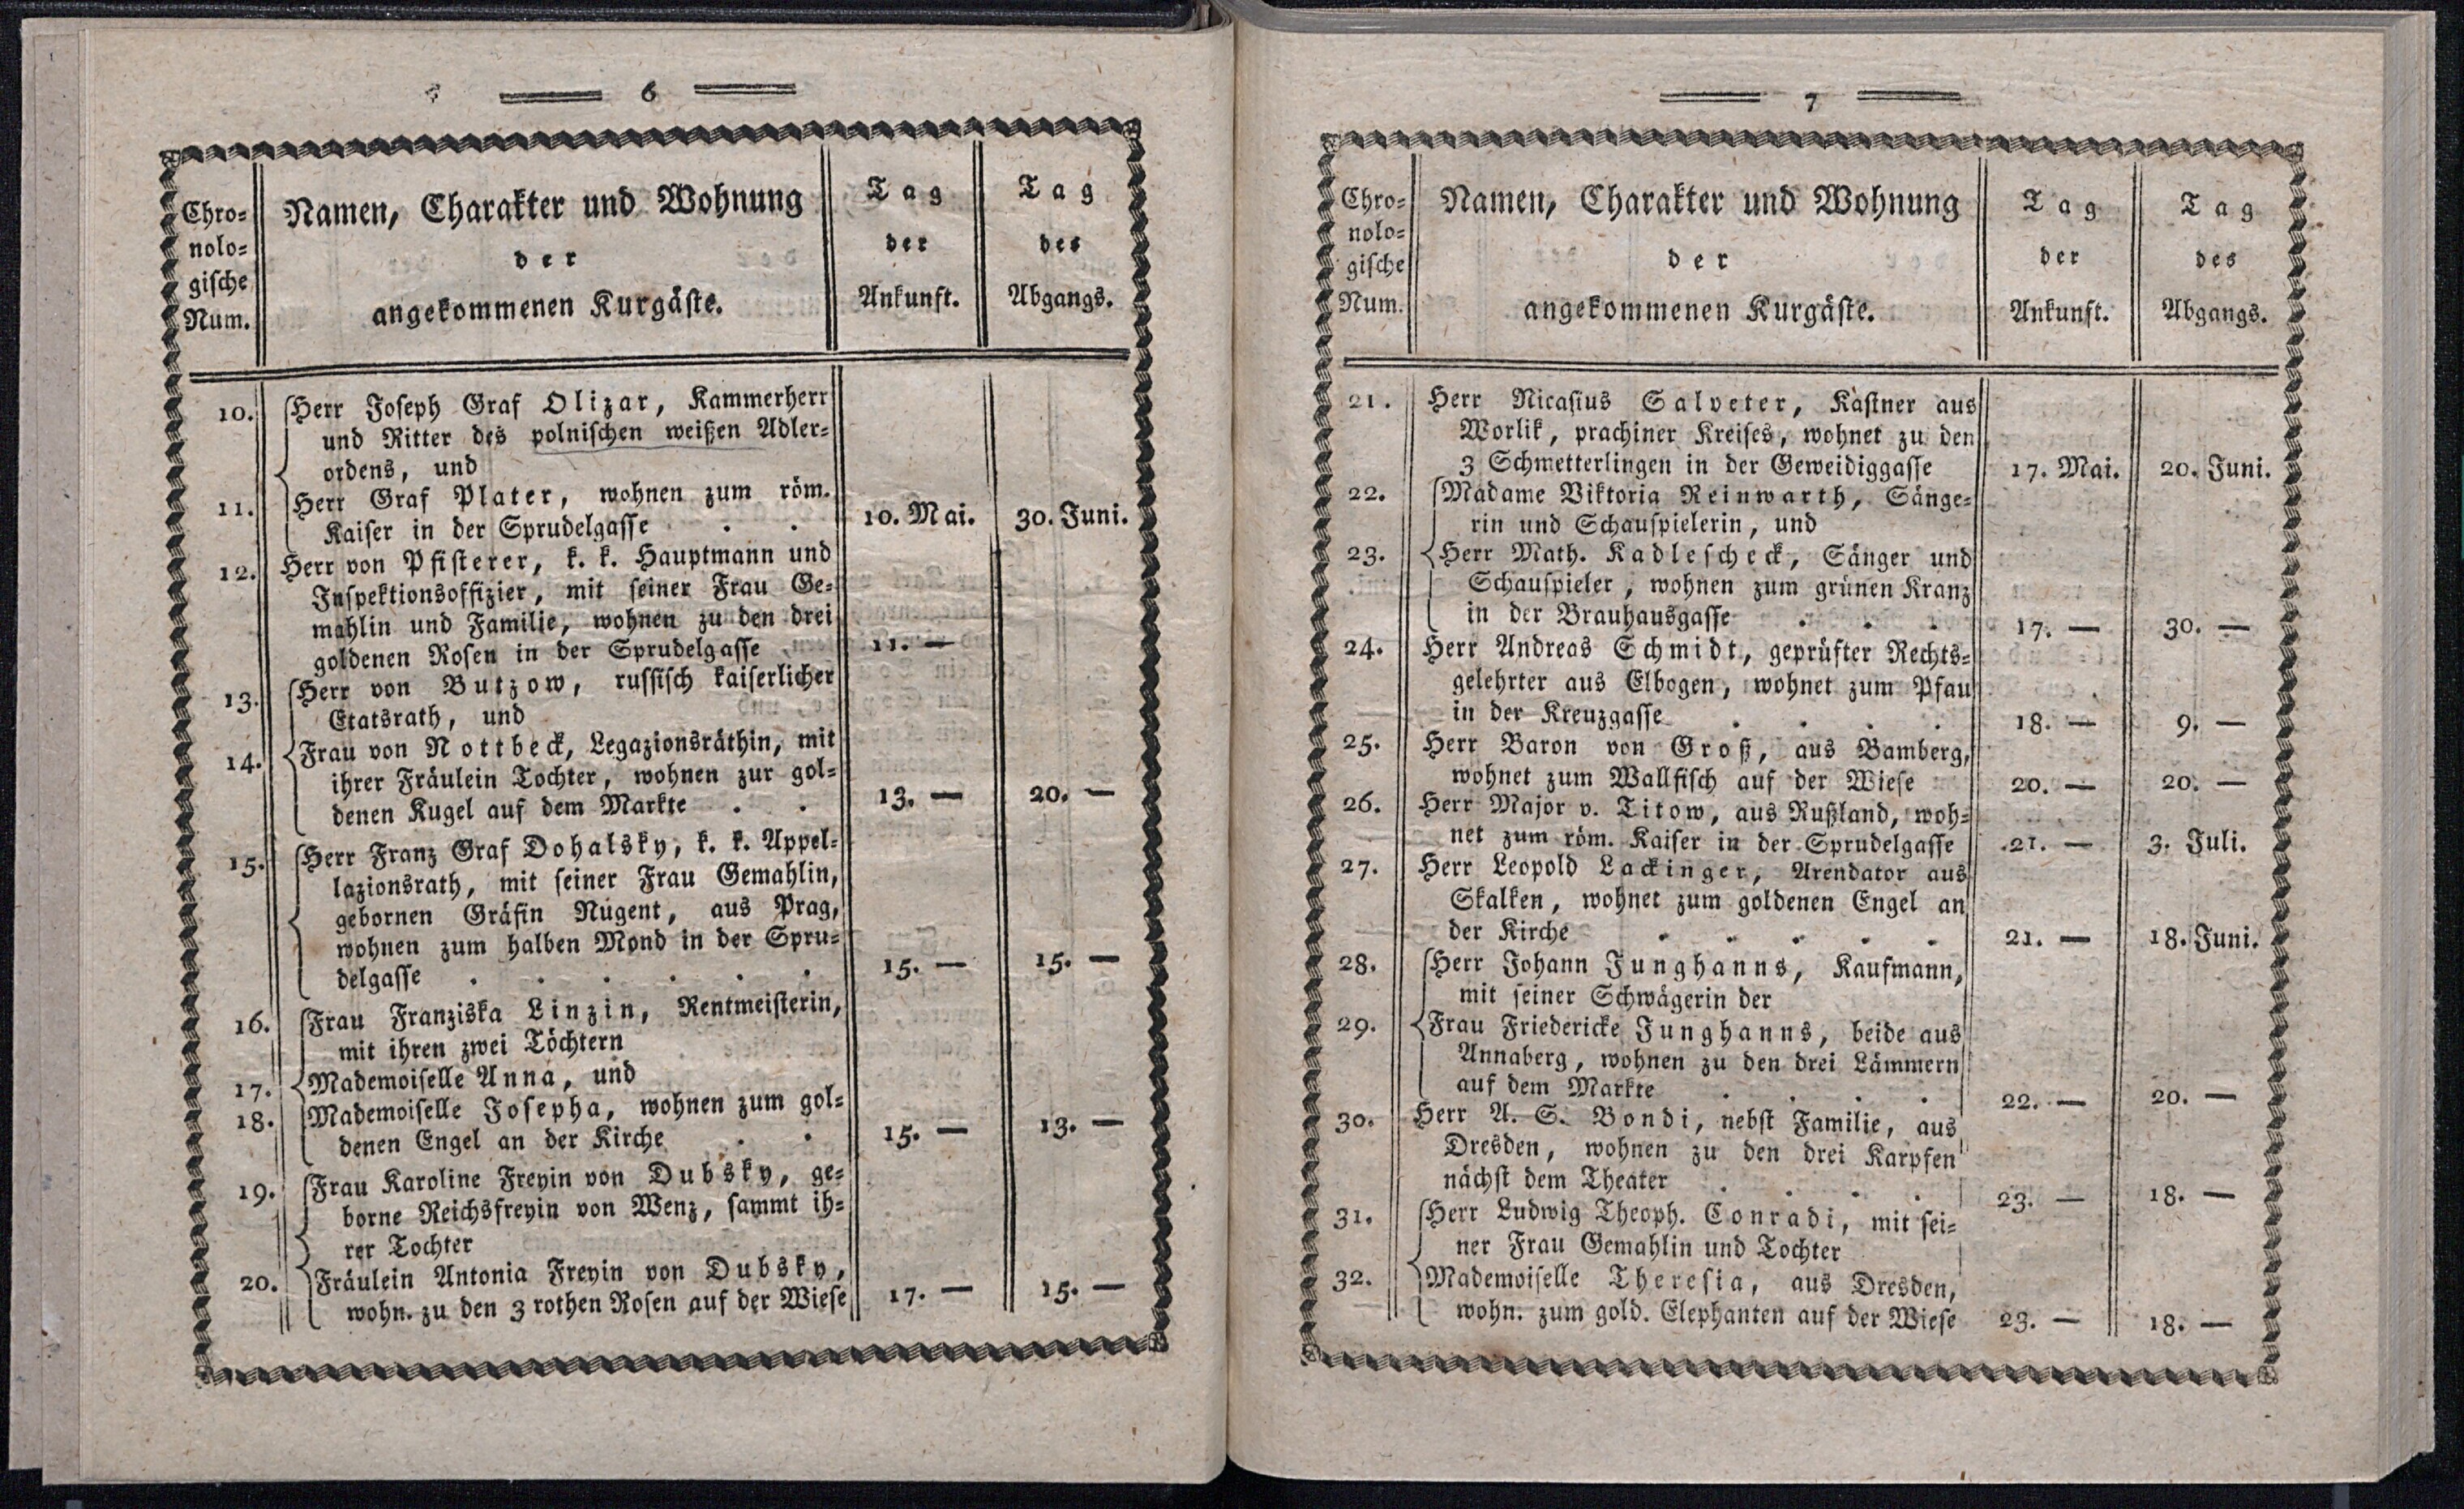 6
Chro-
nolo-
gische
Num.
Namen, Charakter und Wohnung
der
angekommenen Kurgäste.
Tag
der
Ankunft.
Tag
des
Abgangs.
10. Herr Joseph Graf Olizar, Kammerherr
und Ritter des polnischen weißen Adler-
ordens, und
11. Herr Graf Plater, wohnen zum röm.
Kaiser in der Sprudelgasse . . 10. Mai. 30. Juni.
12. Herr von Pfisterer, k. k. Hauptmann und
Inspektionsoffizier, mit seiner Frau Ge-
mahlin und Familie, wohnen zu den drei
goldenen Rosen in der Sprudelgasse 11. —
13. Herr von Butzow, russisch kaiserlicher
Etatsrath, und
14. Frau von Nottbeck, Legazionsräthin, mit
ihrer Fräulein Tochter, wohnen zur gol-
denen Kugel auf dem Markte . . 13. — 20. —
15. Herr Franz Graf Dohalsky, k. k. Appel-
lazionsrath, mit seiner Frau Gemahlin,
gebornen Gräfin Nugent, aus Prag,
wohnen zum halben Mond in der Spru-
delgasse . . . . . . 15. — 15. —
16. Frau Franziska Linzin, Rentmeisterin,
mit ihren zwei Töchtern
17. Mademoiselle Anna, und
18. Mademoiselle Josepha, wohnen zum gol-
denen Engel an der Kirche . . 15. — 13. —
19. Frau Karoline Freyin von Dubsky, ge-
borne Reichsfreyin von Wenz, sammt ih-
rer Tochter
20. Fräulein Antonia Freyin von Dubsky,
wohn. zu den 3 rothen Rosen auf der Wiese 17. — 15. —
7
Chro-
nolo-
gische
Num.
Namen, Charakter und Wohnung
der
angekommenen Kurgäste.
Tag
der
Ankunft.
Tag
des
Abgangs.
21. Herr Nicasius Salveter, Kastner aus
Worlik, prachiner Kreises, wohnet zu den
3 Schmetterlingen in der Geweidiggasse 17. Mai. 20. Juni.
22. Madame Viktoria Reinwarth, Sänge-
rin und Schauspielerin, und
23. Herr Math. Kadlescheck, Sänger und
Schauspieler, wohnen zum grünen Kranz
in der Brauhausgasse . . . 17. — 30. —
24. Herr Andreas Schmidt, geprüfter Rechts-
gelehrter aus Elbogen, wohnet zum Pfau
in der Kreuzgasse . . . . 18. — 9. —
25. Herr Baron von Groß, aus Bamberg,
wohnet zum Wallfisch auf der Wiese 20. — 20. —
26. Herr Major v. Titow, aus Rußland, woh-
net zum röm. Kaiser in der Sprudelgasse 21. — 3. Juli.
27. Herr Leopold Lackinger, Arendator aus
Skalken, wohnet zum goldenen Engel an
der Kirche . . . . . 21. — 18. Juni.
28. Herr Johann Junghanns, Kaufmann,
mit seiner Schwägerin der
29. Frau Friedericke Junghanns, beide aus
Annaberg, wohnen zu den drei Lämmern
auf dem Markte . . . . 22. — 20. —
30. Herr A. S. Bondi, nebst Familie, aus
Dresden, wohnen zu den drei Karpfen
nächst dem Theater . . . . 23. — 18. —
31. Herr Ludwig Theoph. Conradi, mit sei-
ner Frau Gemahlin und Tochter
32. Mademoiselle Theresia, aus Dresden,
wohn. zum gold. Elephanten auf der Wiese 23. — 18. —